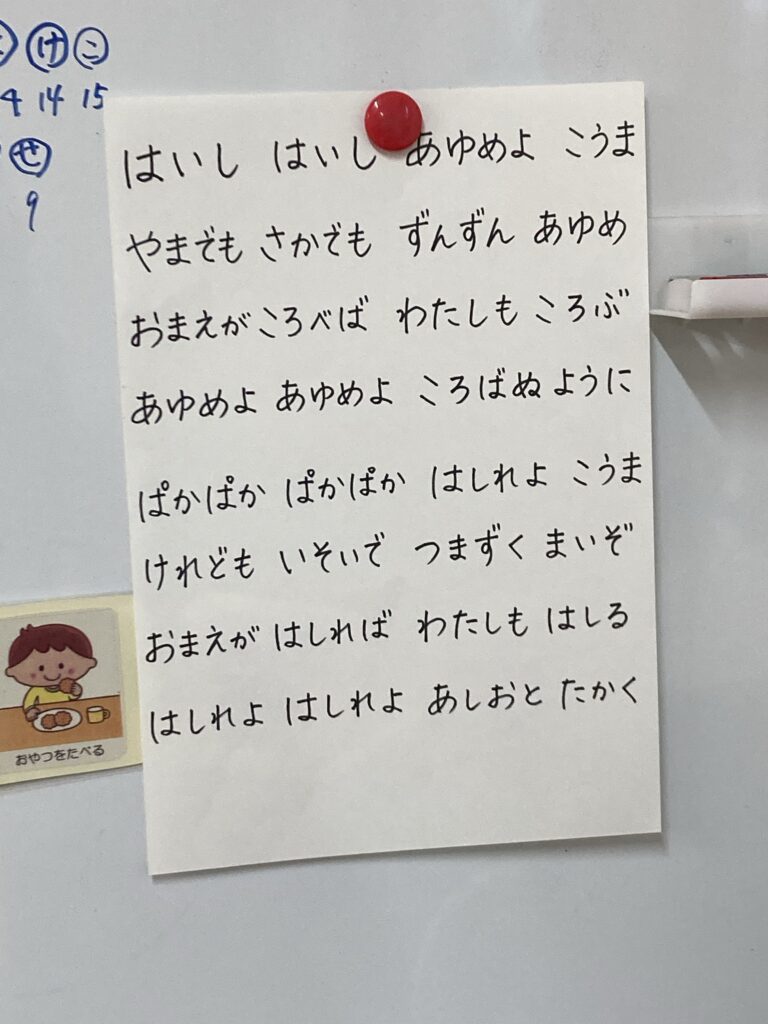 け こ
4 14 15
せ
9
はいし はいし あゆめよ こうま
やまでも さかでも ずんずん あゆめ
おまえがころべば わたしも ころぶ
あゆめよ あゆめよ ころばぬ ように
ぱかぱか ぱかぱか はしれよ こうま
けれども いそいで つまずく まいぞ
おまえが はしれば わたしも はしる
はしれよ はしれよ あしおと たかく
おやつをたべる